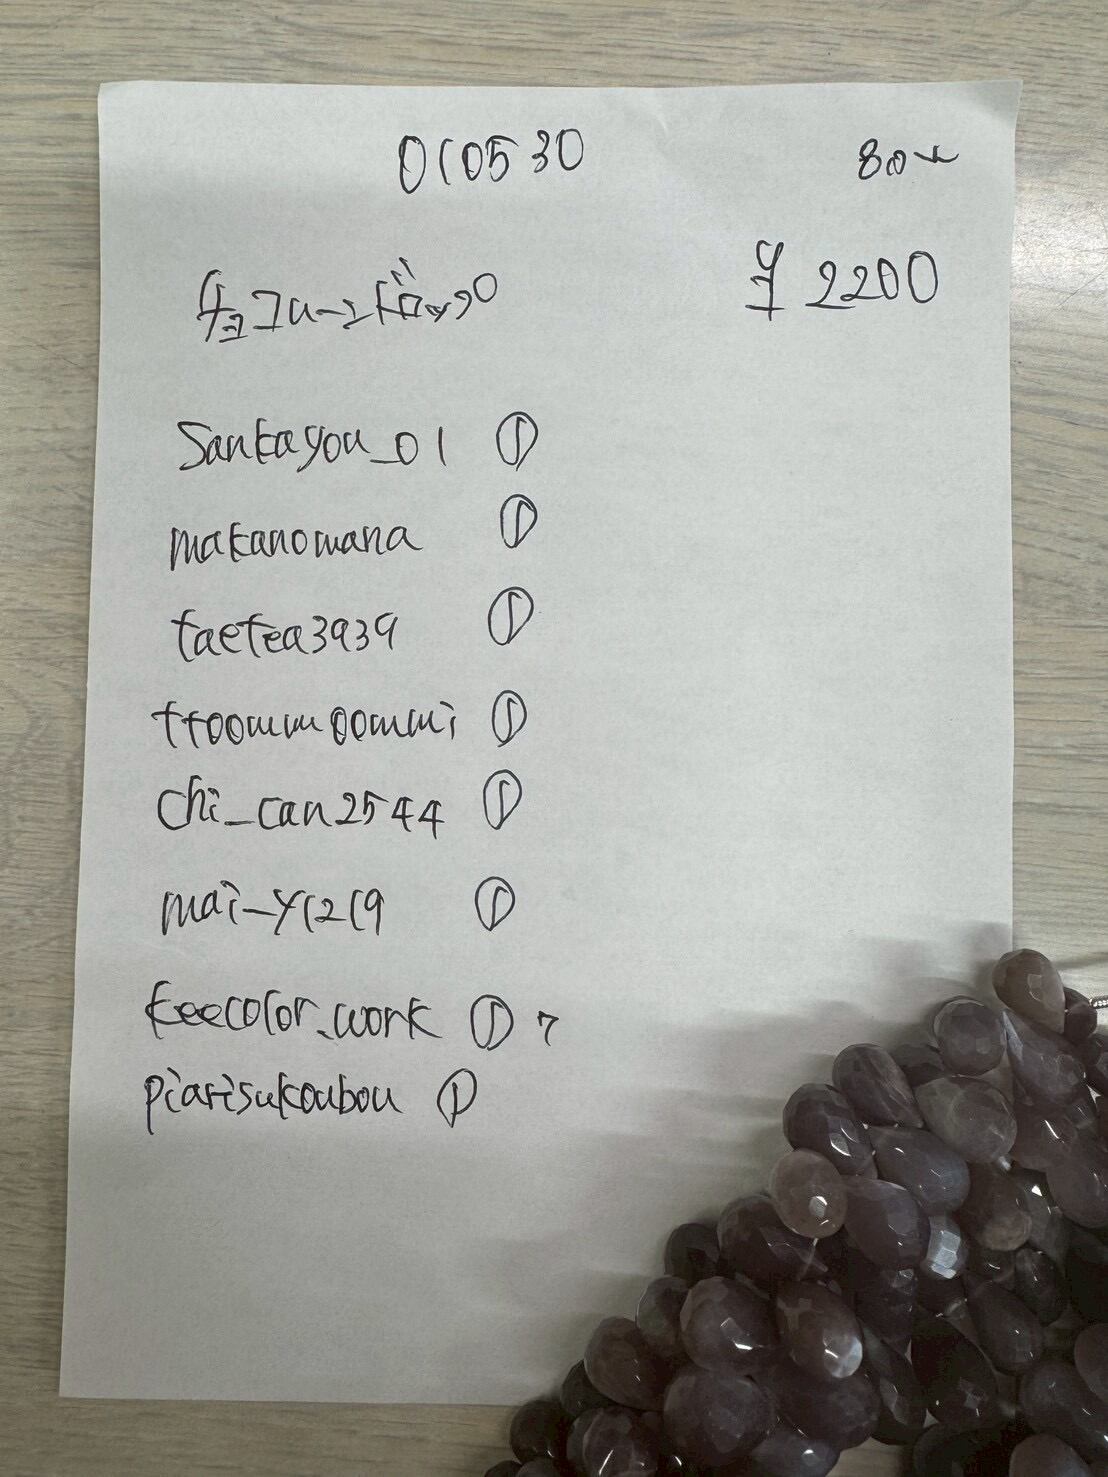 010530
80%
チョコムーンドロップ
¥2200
Sankayou_01 ①
makanomana ①
taetea3939 ①
ttoommoommi ①
chi_can2544 ①
mai-y1219 ①
keecolor.work ①
piarisukoubou ①